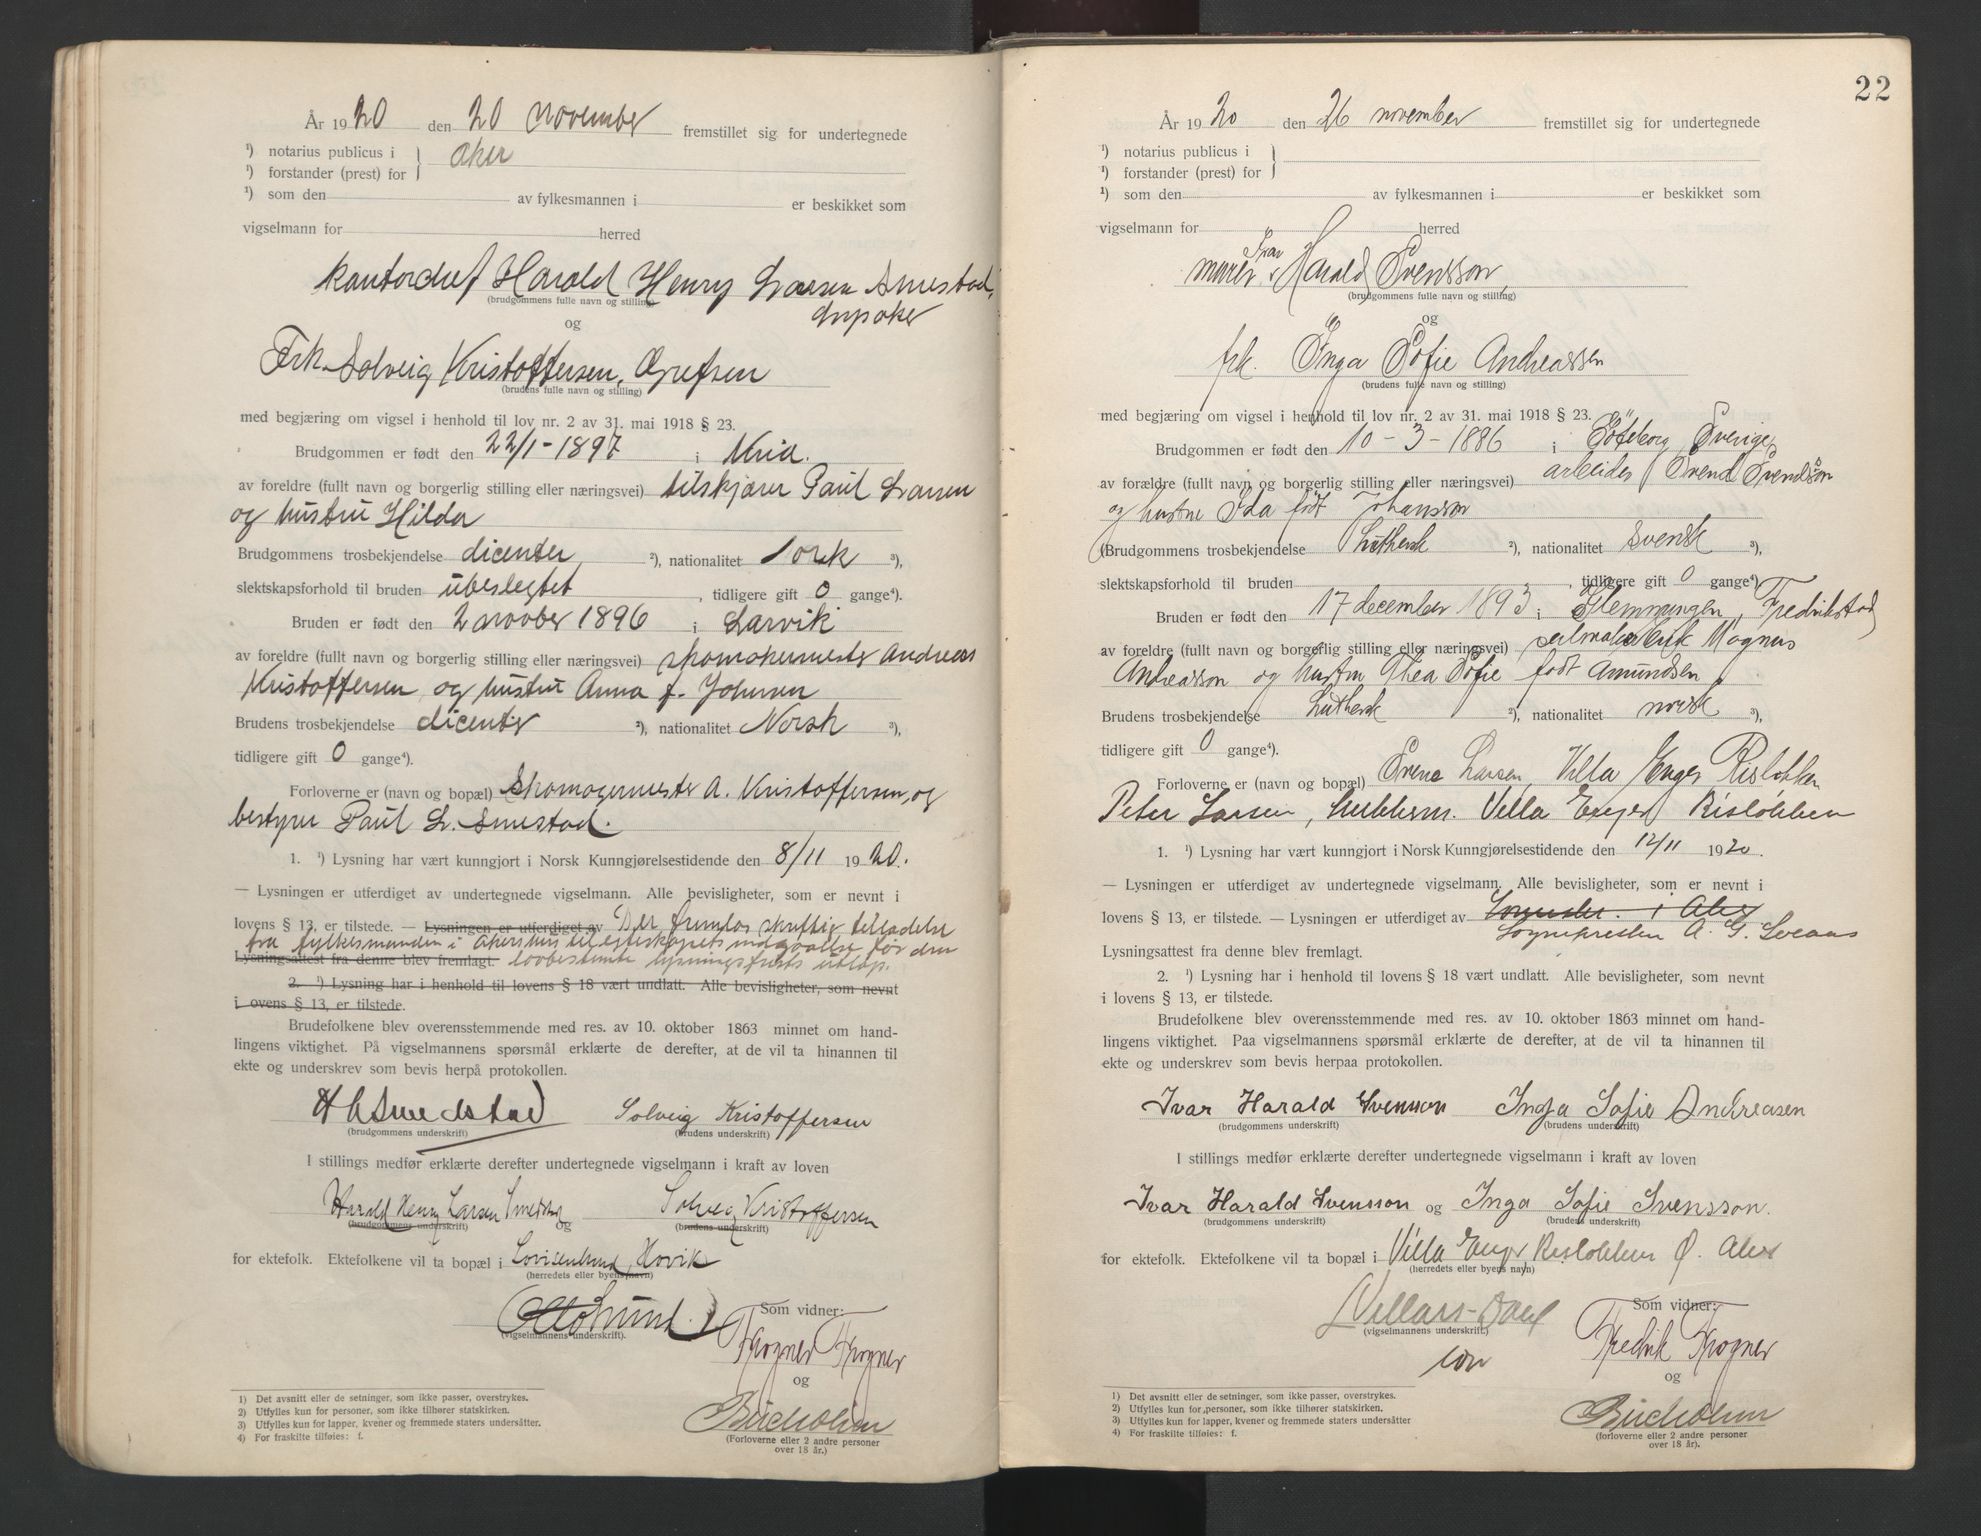 År 1920 den 20 november fremstillet sig for undertegnede
¹) notarius publicus i } Aker
¹) forstander (prest) for
¹) som den av fylkesmannen i er beskikket som
vigselmann for herred
Harald Henry Larsen Smestad,
(brudgommens fulle navn og stilling)
og
Frk. Solveig Kristoffersen, Grefsen
(brudens fulle navn og stilling)
med begjæring om vigsel i henhold til lov nr. 2 av 31. mai 1918 § 23.
Brudgommen er født den 22/1-1897 i Kria.
av foreldre (fullt navn og borgerlig stilling eller næringsvei) tilskjærer Paul Larsen
og hustru Hilda
Brudgommens trosbekjendelse dicenter ²), nationalitet Norsk ³),
slektskapsforhold til bruden ubeslegtet, tidligere gift 0 gange⁴).
Bruden er født den 2 novber 1896 i Larvik
av foreldre (fullt navn og borgerlig stilling eller næringsvei) skomakermester Andreas
Kristoffersen og hustru Anna f. Johnsen
Brudens trosbekjendelse dicenter ²), nationalitet Norsk ³),
tidligere gift 0 gange⁴).
Forloverne er (navn og bopæl) Skomagermester A. Kristoffersen, og
bestyrer Paul L. Smestad.
1. ¹) Lysning har vært kunngjort i Norsk Kunngjørelsestidende den 8/11 1920.
— Lysningen er utferdiget av undertegnede vigselmann. Alle bevisligheter, som er nevnt i
lovens § 13, er tilstede. — Lysningen er utferdiget av Der fremlaa skriftlig tilladelse
fra fylkesmanden i Akershus til egteskapets indgaaelse før den
Lysningsattest fra denne blev fremlagt. lovbestemte lysningsfrists utløp.
2. ¹) Lysning har i henhold til lovens § 18 vært undlatt. Alle bevisligheter, som nevnt
i lovens § 13, er tilstede.
Brudefolkene blev overensstemmende med res. av 10. oktober 1863 minnet om hand-
lingens viktighet. På vigselmannens spørsmål erklærte de derefter, at de vil ta hinannen til
ekte og underskrev som bevis herpå protokollen.
H L Smedstad Solveig Kristoffersen
(brudgommens underskrift) (brudens underskrift)
I stillings medfør erklærte derefter undertegnede vigselmann i kraft av loven
Harald Henry Larsen Smedstad og Solveig Kristoffersen
(brudgommens underskrift) (brudens underskrift)
for ektefolk. Ektefolkene vil ta bopæl i Lovisenlund, Høvik
(herredets eller byens navn)
Otto Lund. Som vidner:
(vigselmannens underskrift). Trogner
og
Bucholm
(Forloverne eller 2 andre personer
over 18 år.)
1) Det avsnitt eller de setninger, som ikke passer, overstrykes.
2) Utfylles kun for personer, som ikke tilhører statskirken.
3) Utfylles kun for lapper, kvener og fremmede staters undersåtter.
4) For fraskilte tilføies: f.
22
År 1920 den 26 november fremstillet sig for undertegnede
¹) notarius publicus i }
¹) forstander (prest) for
¹) som den av fylkesmannen i er beskikket som
vigselmann for herred
murer Ivar Harald Svensson,
(brudgommens fulle navn og stilling)
og
frk. Inga Sofie Andreassen
(brudens fulle navn og stilling)
med begjæring om vigsel i henhold til lov nr. 2 av 31. mai 1918 § 23.
Brudgommen er født den 10-3-1886 i Göteborg, Sverige,
av forældre (fullt navn og borgerlig stilling eller næringsvei) arbeider Svend Svendsson
og hustru Ida født Johansson
(Brudgommens trosbekjendelse Luthersk ²), nationalitet svensk ³),
slektskapsforhold til bruden , tidligere gift 0 gange⁴)
Bruden er født den 17 december 1893 i Glemmingen, Fredrikstad
av foreldre (fullt navn og borgerlig stilling eller næringsvei) seilmaker Erik Magnus
Andreasson og hustru Thea Sofie født Amundsen
Brudens trosbekjendelse Luthersk ²), nationalitet norsk ³),
tidligere gift 0 gange⁴).
Forloverne er (navn og bopæl) Larsen, Villa Enger Risløkken
Peter Larsen, Villa Enger Risløkken
1. ¹) Lysning har vært kunngjort i Norsk Kunngjørelsestidende den 12/11 1920.
— Lysningen er utferdiget av undertegnede vigselmann. Alle bevisligheter, som er nevnt i
lovens § 13, er tilstede. — Lysningen er utferdiget av i Aker
Sognepresten A. G. Sveaas
Lysningsattest fra denne blev fremlagt.
2. ¹) Lysning har i henhold til lovens § 18 vært undlatt. Alle bevisligheter, som nevnt
i lovens § 13, er tilstede.
Brudefolkene blev overensstemmende med res. av 10. oktober 1863 minnet om hand-
lingens viktighet. Paa vigselmannens spørsmål erklærte de derefter, at de vil ta hinannen til
ekte og underskrev som bevis herpaa protokollen.
Ivar Harald Svensson Inga Sofie Andreasen
(brudgommens underskrift) (brudens underskrift)
I stillings medfør erklærte derefter undertegnede vigselmann i kraft av loven
Ivar Harald Svensson og Inga Sofie Svensson.
(brudgommens underskrift) (brudens underskrift)
for ektefolk. Ektefolkene vil ta bopæl i Villa Enger, Risløkken Ø. Aker
(herredets eller byens navn)
Som vidner:
(vigselmannens underskrift) Fredrik Trogner
og
Bucholm
(forloverne eller 2 andre personer
over 18 år).
1) Det avsnitt eller de setninger, som ikke passer, overstrykes.
2) Utfylles kun for personer, som ikke tilhører statskirken.
3) Utfylles kun for lapper, kvener og fremmede staters undersåtter
4) For fraskilte tilføies: f.